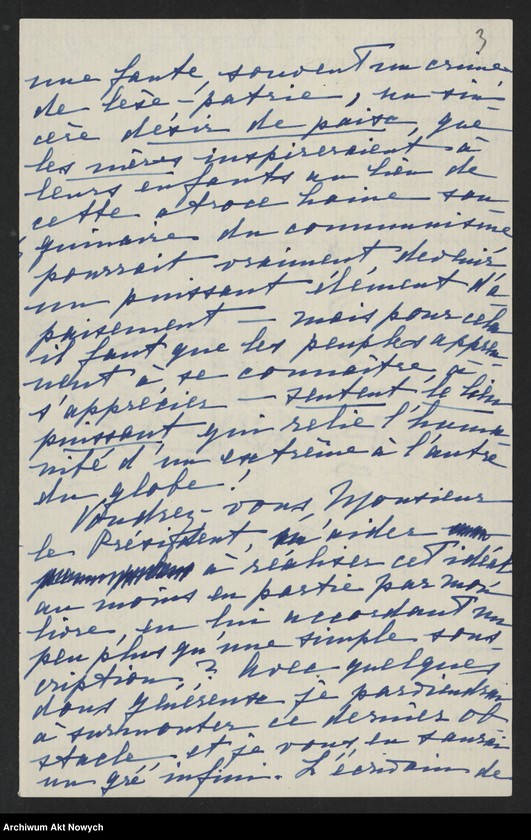 3
une faute, souvent un crime
de lèse-patrie, un sin-
cère désir de paix, que
les mères inspireraient à
leurs enfants au lieu de
cette atroce haine san-
guinaire du communisme
pourrait vraiment devenir
un puissant élément d'a-
paisement — mais pour cela
il faut que les peuples appren-
nent à se connaître, à
s'apprécier — sentent le lien
puissant qui relie l'huma-
nité d'un extrême à l'autre
du globe!
Voudrez-vous, Monsieur
le Président, m'aider
à réaliser cet idéal
au moins en partie par mon
livre, en lui accordant un
peu plus qu'une simple sous-
cription? Avec quelques
dons généreux je parviendrai
à surmonter ce dernier ob
stacle et je vous en saurai
un gré infini. L'écrivain de
Archiwum Akt Nowych